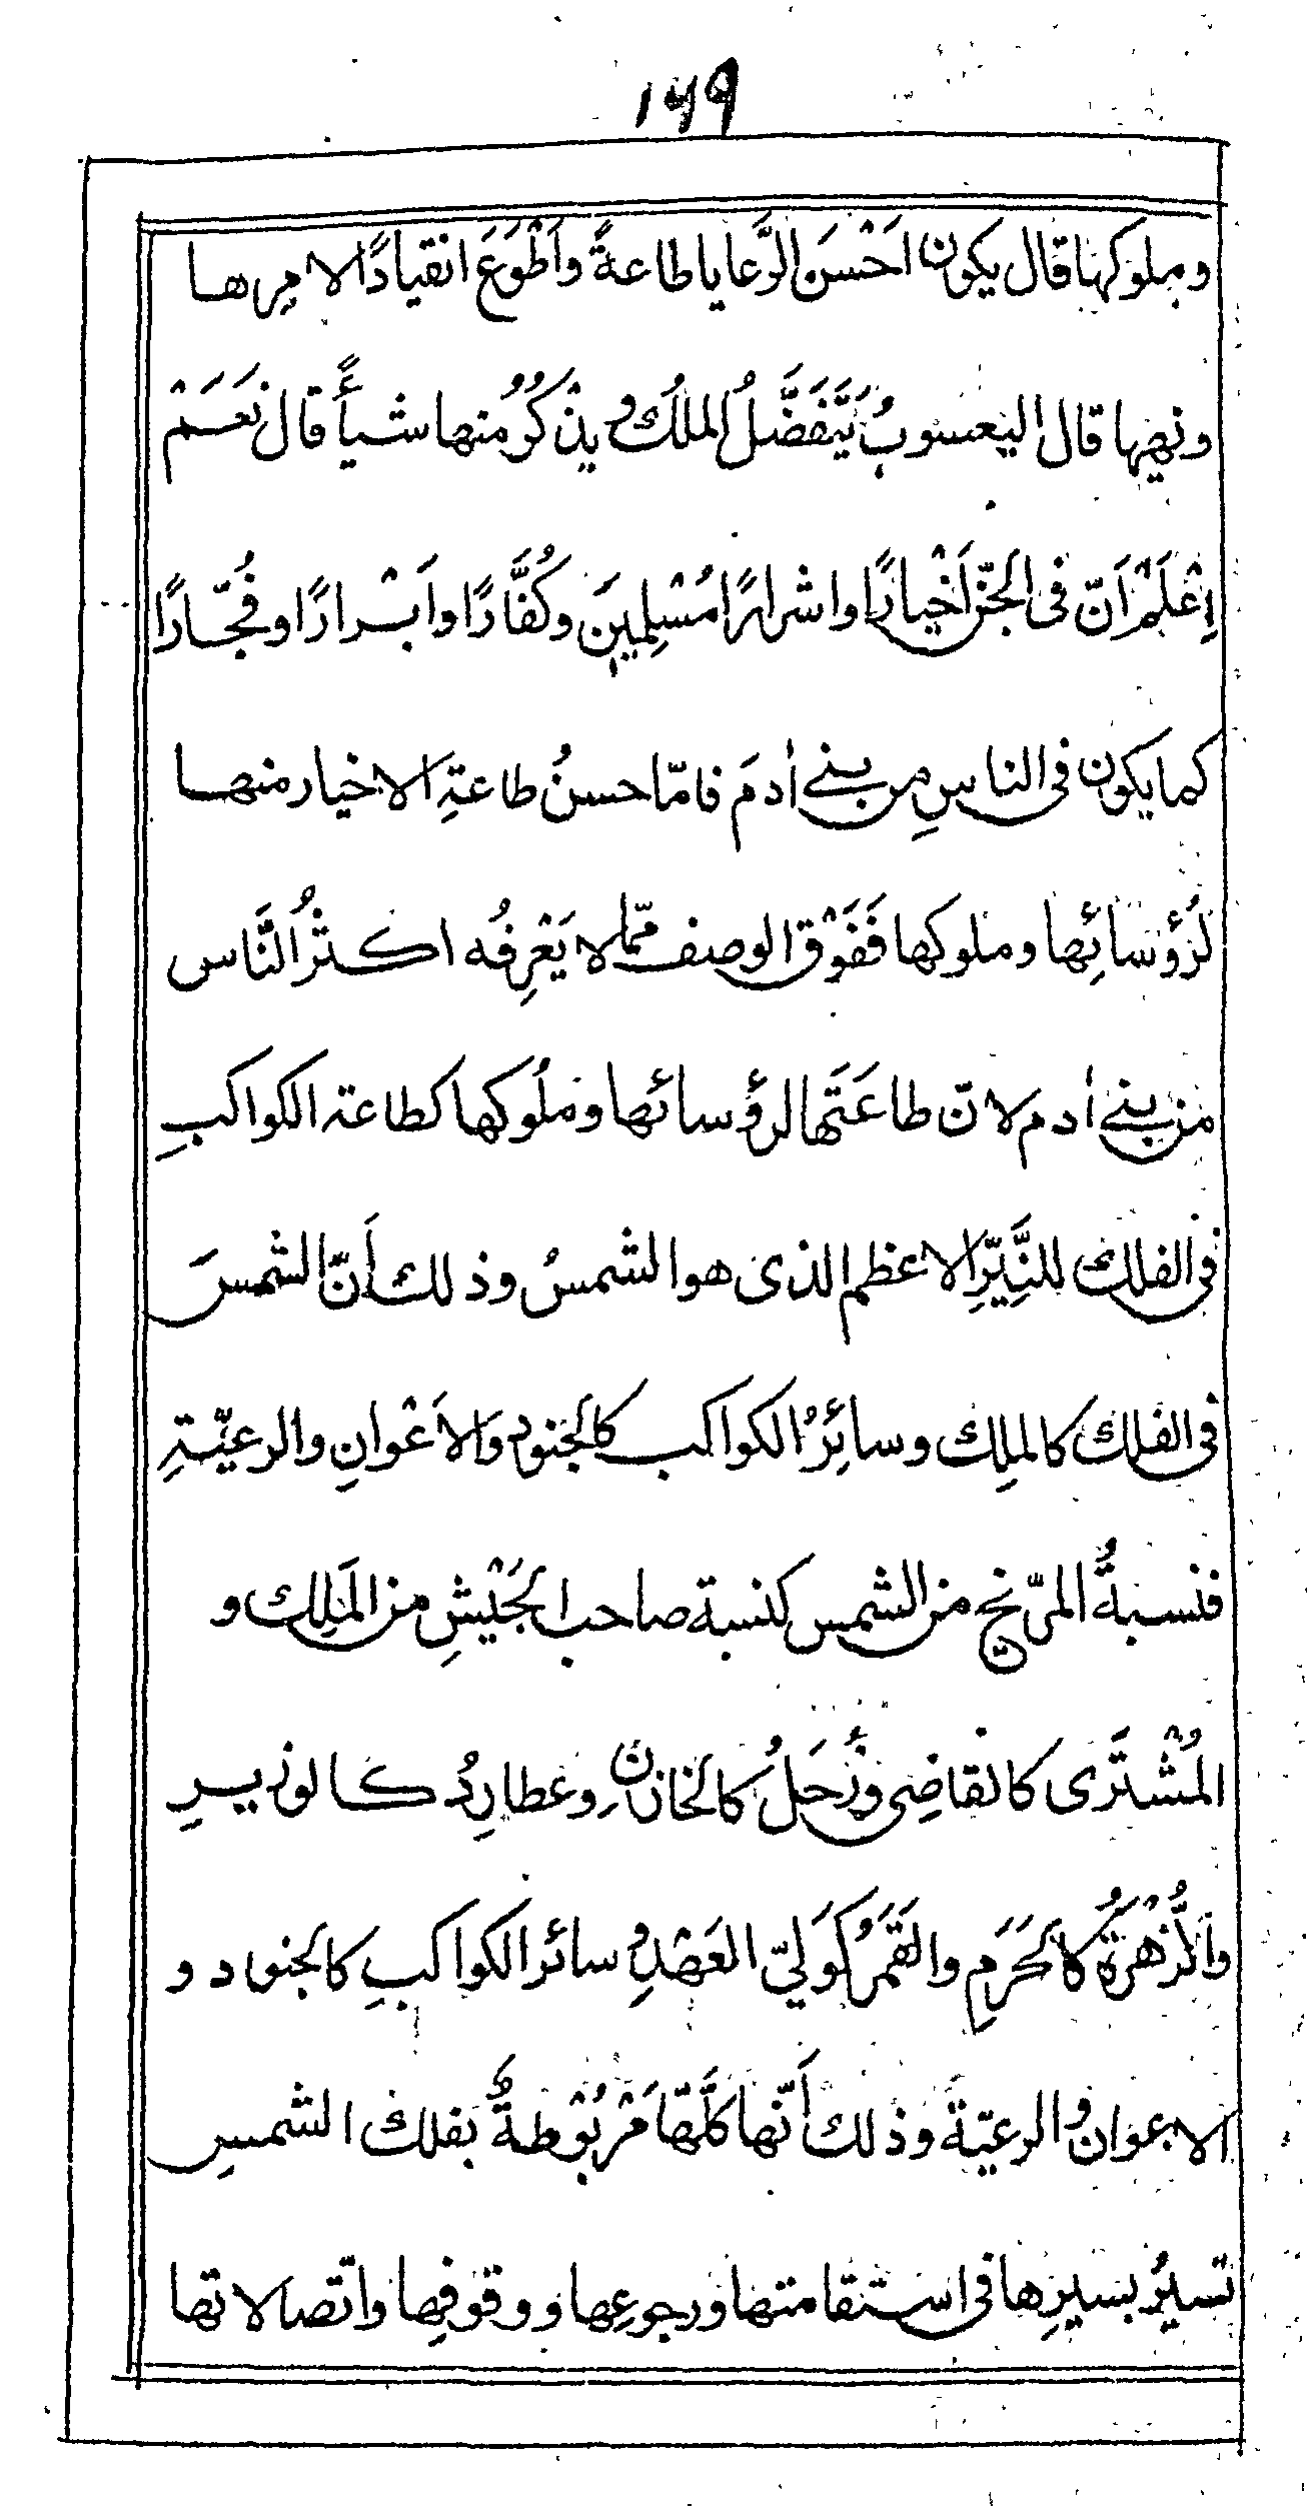 ۱۶۹
وملوكها قال يكون اَحْسَن الرَّعايا طاعةً واَطْوَعَ انقيادًا لامرها
ونهيها قال اليعسوبُ يَتَفَضَّلُ الملكُ ويذكُرُ منها شيأً قال نَعَمْ
اِعْلَمْ اَنّ فى الجنّ اَخْيارًا واشرارًا مُسْلِمِينَ وكُفَّارًا واَبْرارًا وفُجّارًا
كما يكون فى الناسِ من بنى اٰدمَ فامّا حسنُ طاعةِ الاخيار منها
لرُؤسائِها وملوكها فَفَوْق الوصف ممّا لا يَعْرِفُه اكثرُ النَّاس
من بنى اٰدم لانّ طاعَتَها لرؤسائها وملُوكها كطاعة الكواكبِ
فى الفلك للنَّيِّرِ الاعظم الذى هو الشمسُ وذلك اَنّ الشمسَ
فى الفلك كالملِك وسائِرُ الكواكب كالجنود وَالاَعْوانِ والرعيّةِ
فنسبةُ المرّيخ من الشمس كنسبة صاحب الجَيْشِ من المَلِك و
المُشْتَرَى كالقاضِى وزُحَلُ كالخازن وعطارِدُ كالوزيرِ
وَالزُّهْرَةُ كالحَرَمِ والقَمَرُ كَوَلىّ العَهْدِ وسائر الكواكبِ كالجنود و
الاعوان والرعيّة وذلك اَنّها كلَّهَا مَرْبُوْطةٌ بفلك الشمسِ
تسيرُ بسيرِها فى استقامتها ورجوعِها ووقوفِها واتّصالاتها